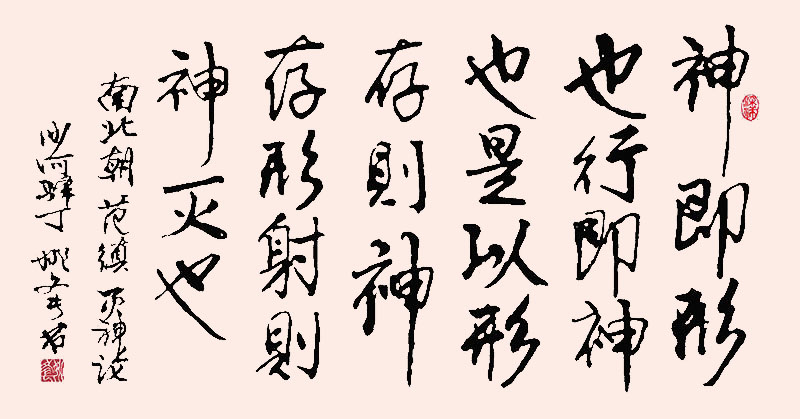 神即形
也行即神
也是以形
存則神
存形射則
神灭也
南北朝范縝灭神论
沙河